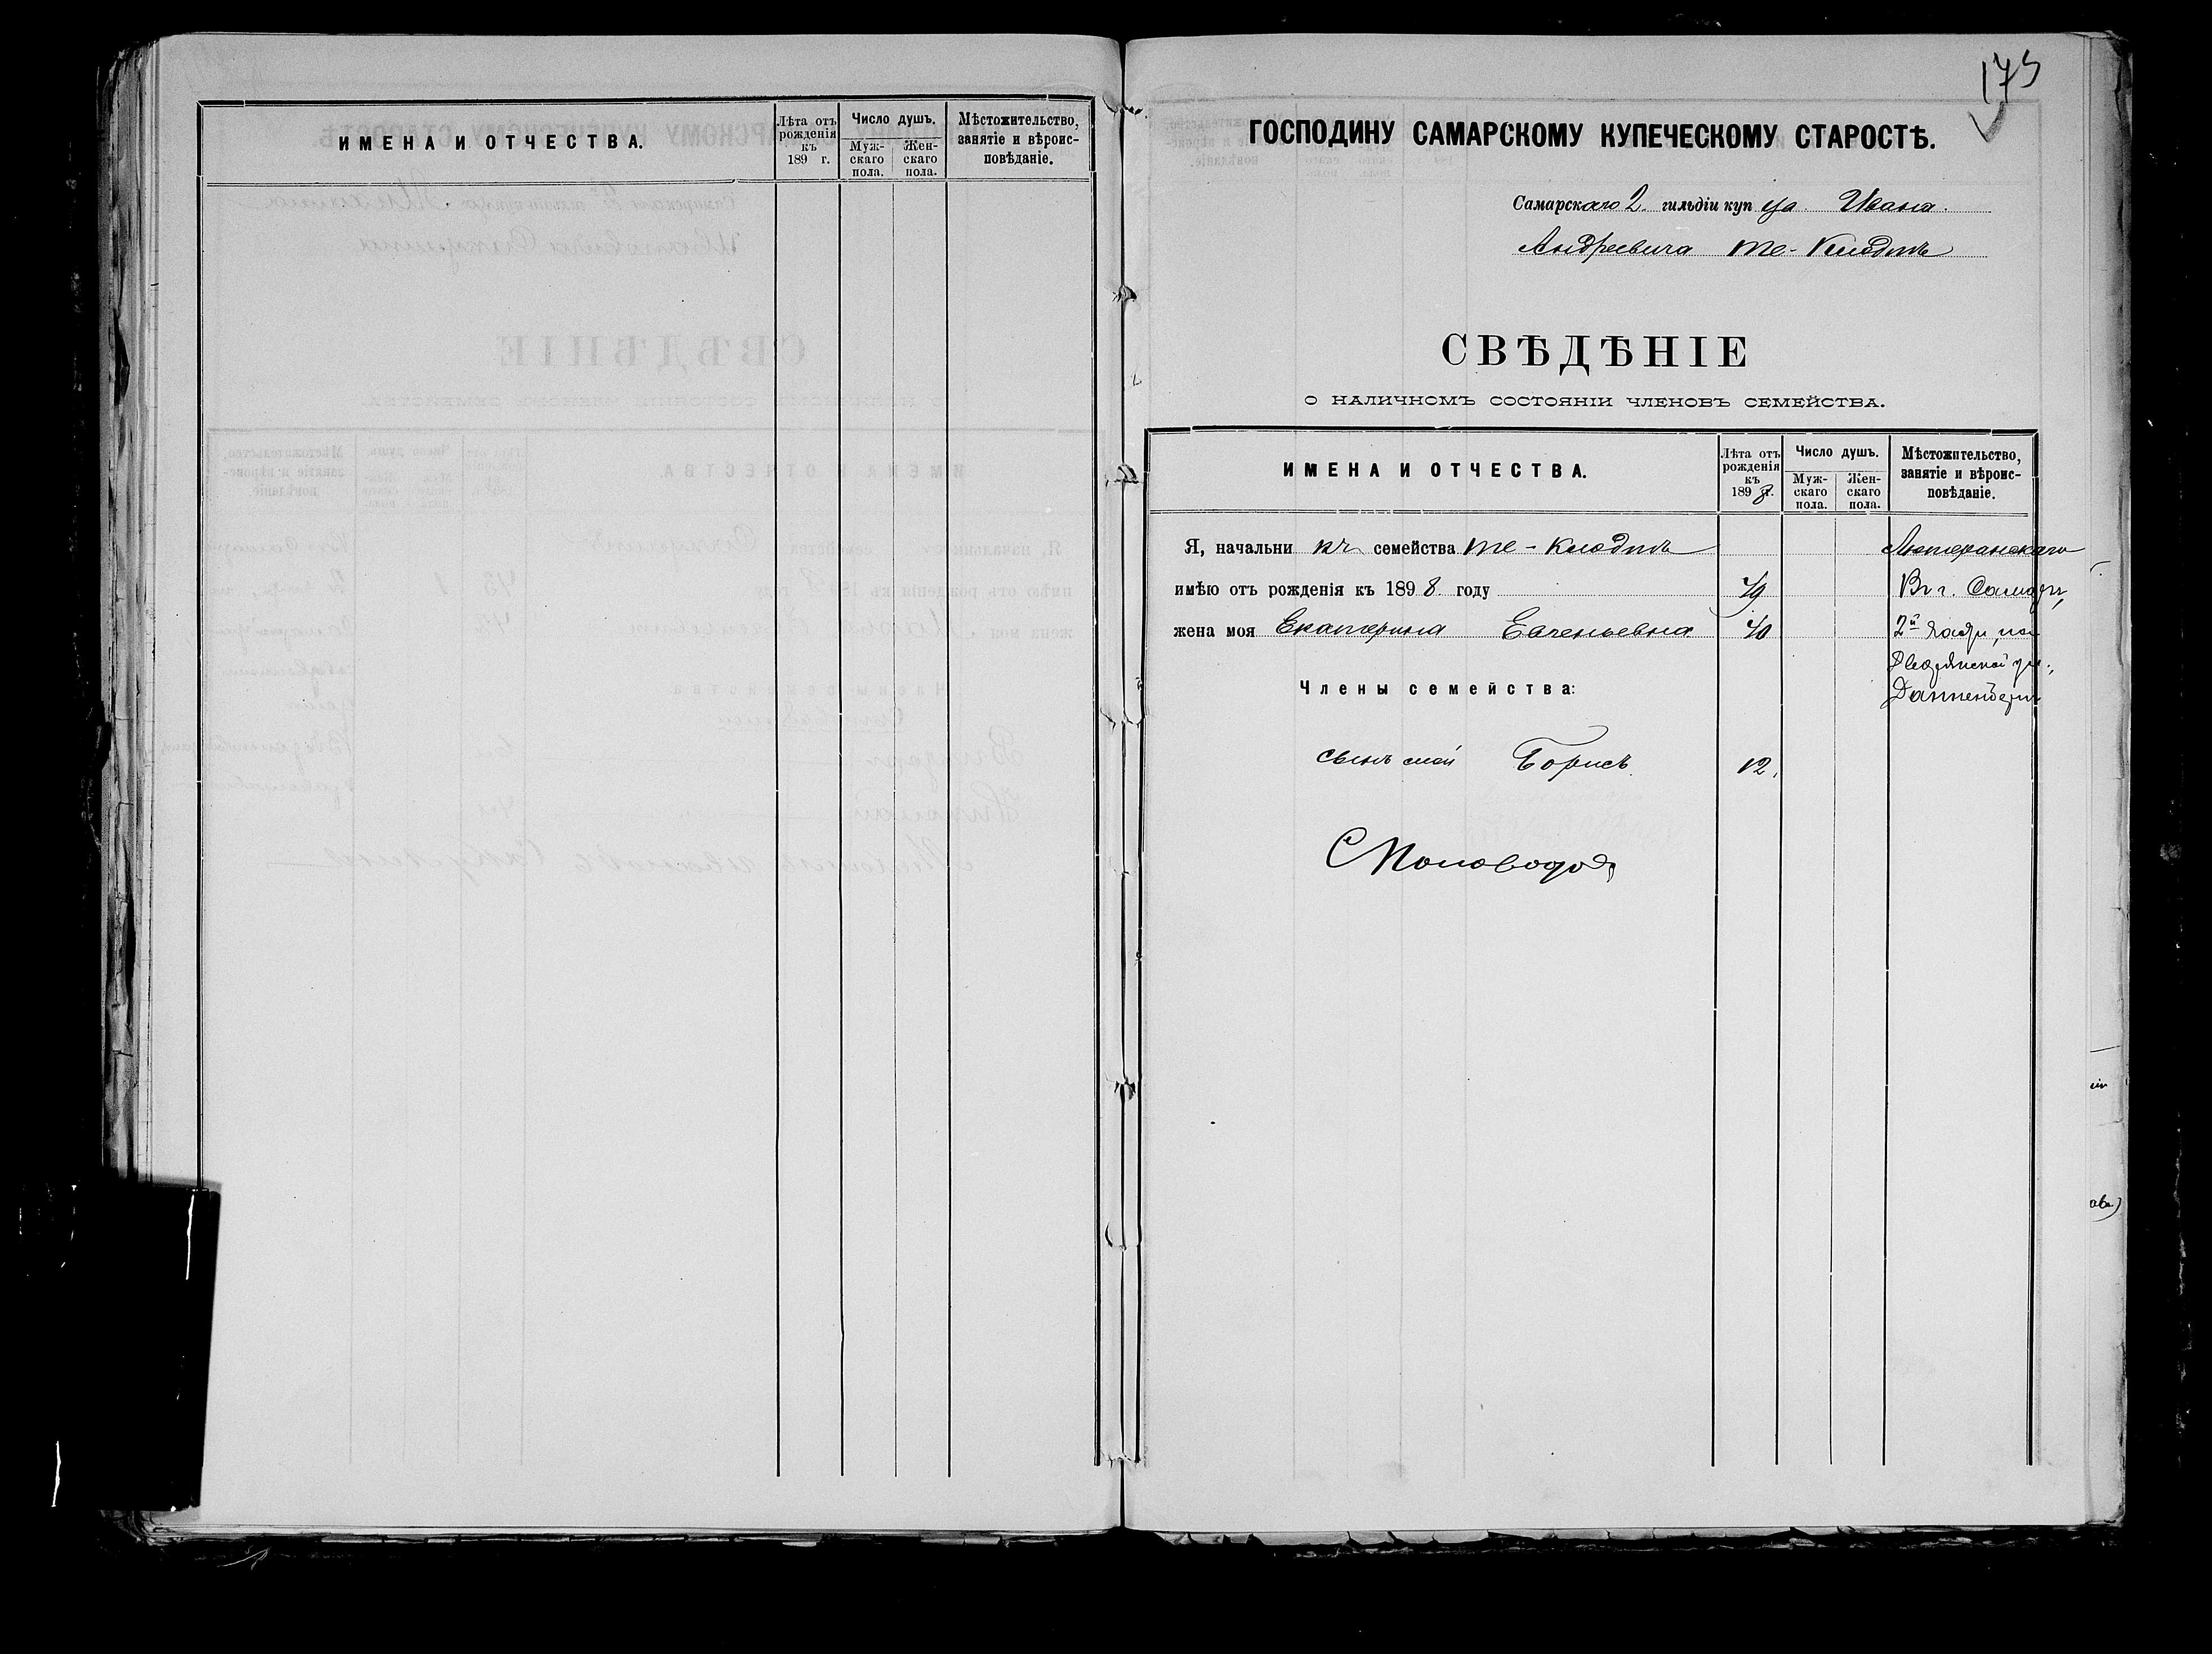 ИМЕНА И ОТЧЕСТВА.
Лѣта отъ рожденія къ 189 г.
Число душъ.
Муж-скаго пола.
Жен-скаго пола.
Мѣстожительство, занятіе и вѣроис-повѣданіе.
175
ГОСПОДИНУ САМАРСКОМУ КУПЕЧЕСКОМУ СТАРОСТѢ.
Самарскаго 2 гильдіи купца Ивана
Андреевича те-Клодтъ
СВѢДѢНІЕ
О НАЛИЧНОМЪ СОСТОЯНІИ ЧЛЕНОВЪ СЕМЕЙСТВА.
ИМЕНА И ОТЧЕСТВА.
Лѣта отъ рожденія къ 1898 г.
Число душъ.
Муж-скаго пола.
Жен-скаго пола.
Мѣстожительство, занятіе и вѣроис-повѣданіе.
Я, начальникъ семейства те-Клодтъ Лютеранскаго
имѣю отъ рожденія къ 1898 году 49 Въ г. Самарѣ,
жена моя Екатерина Евгеньевна 40 2й части, по
Дворянской ул.,
Члены семейства:
сынъ мой Борисъ 12.